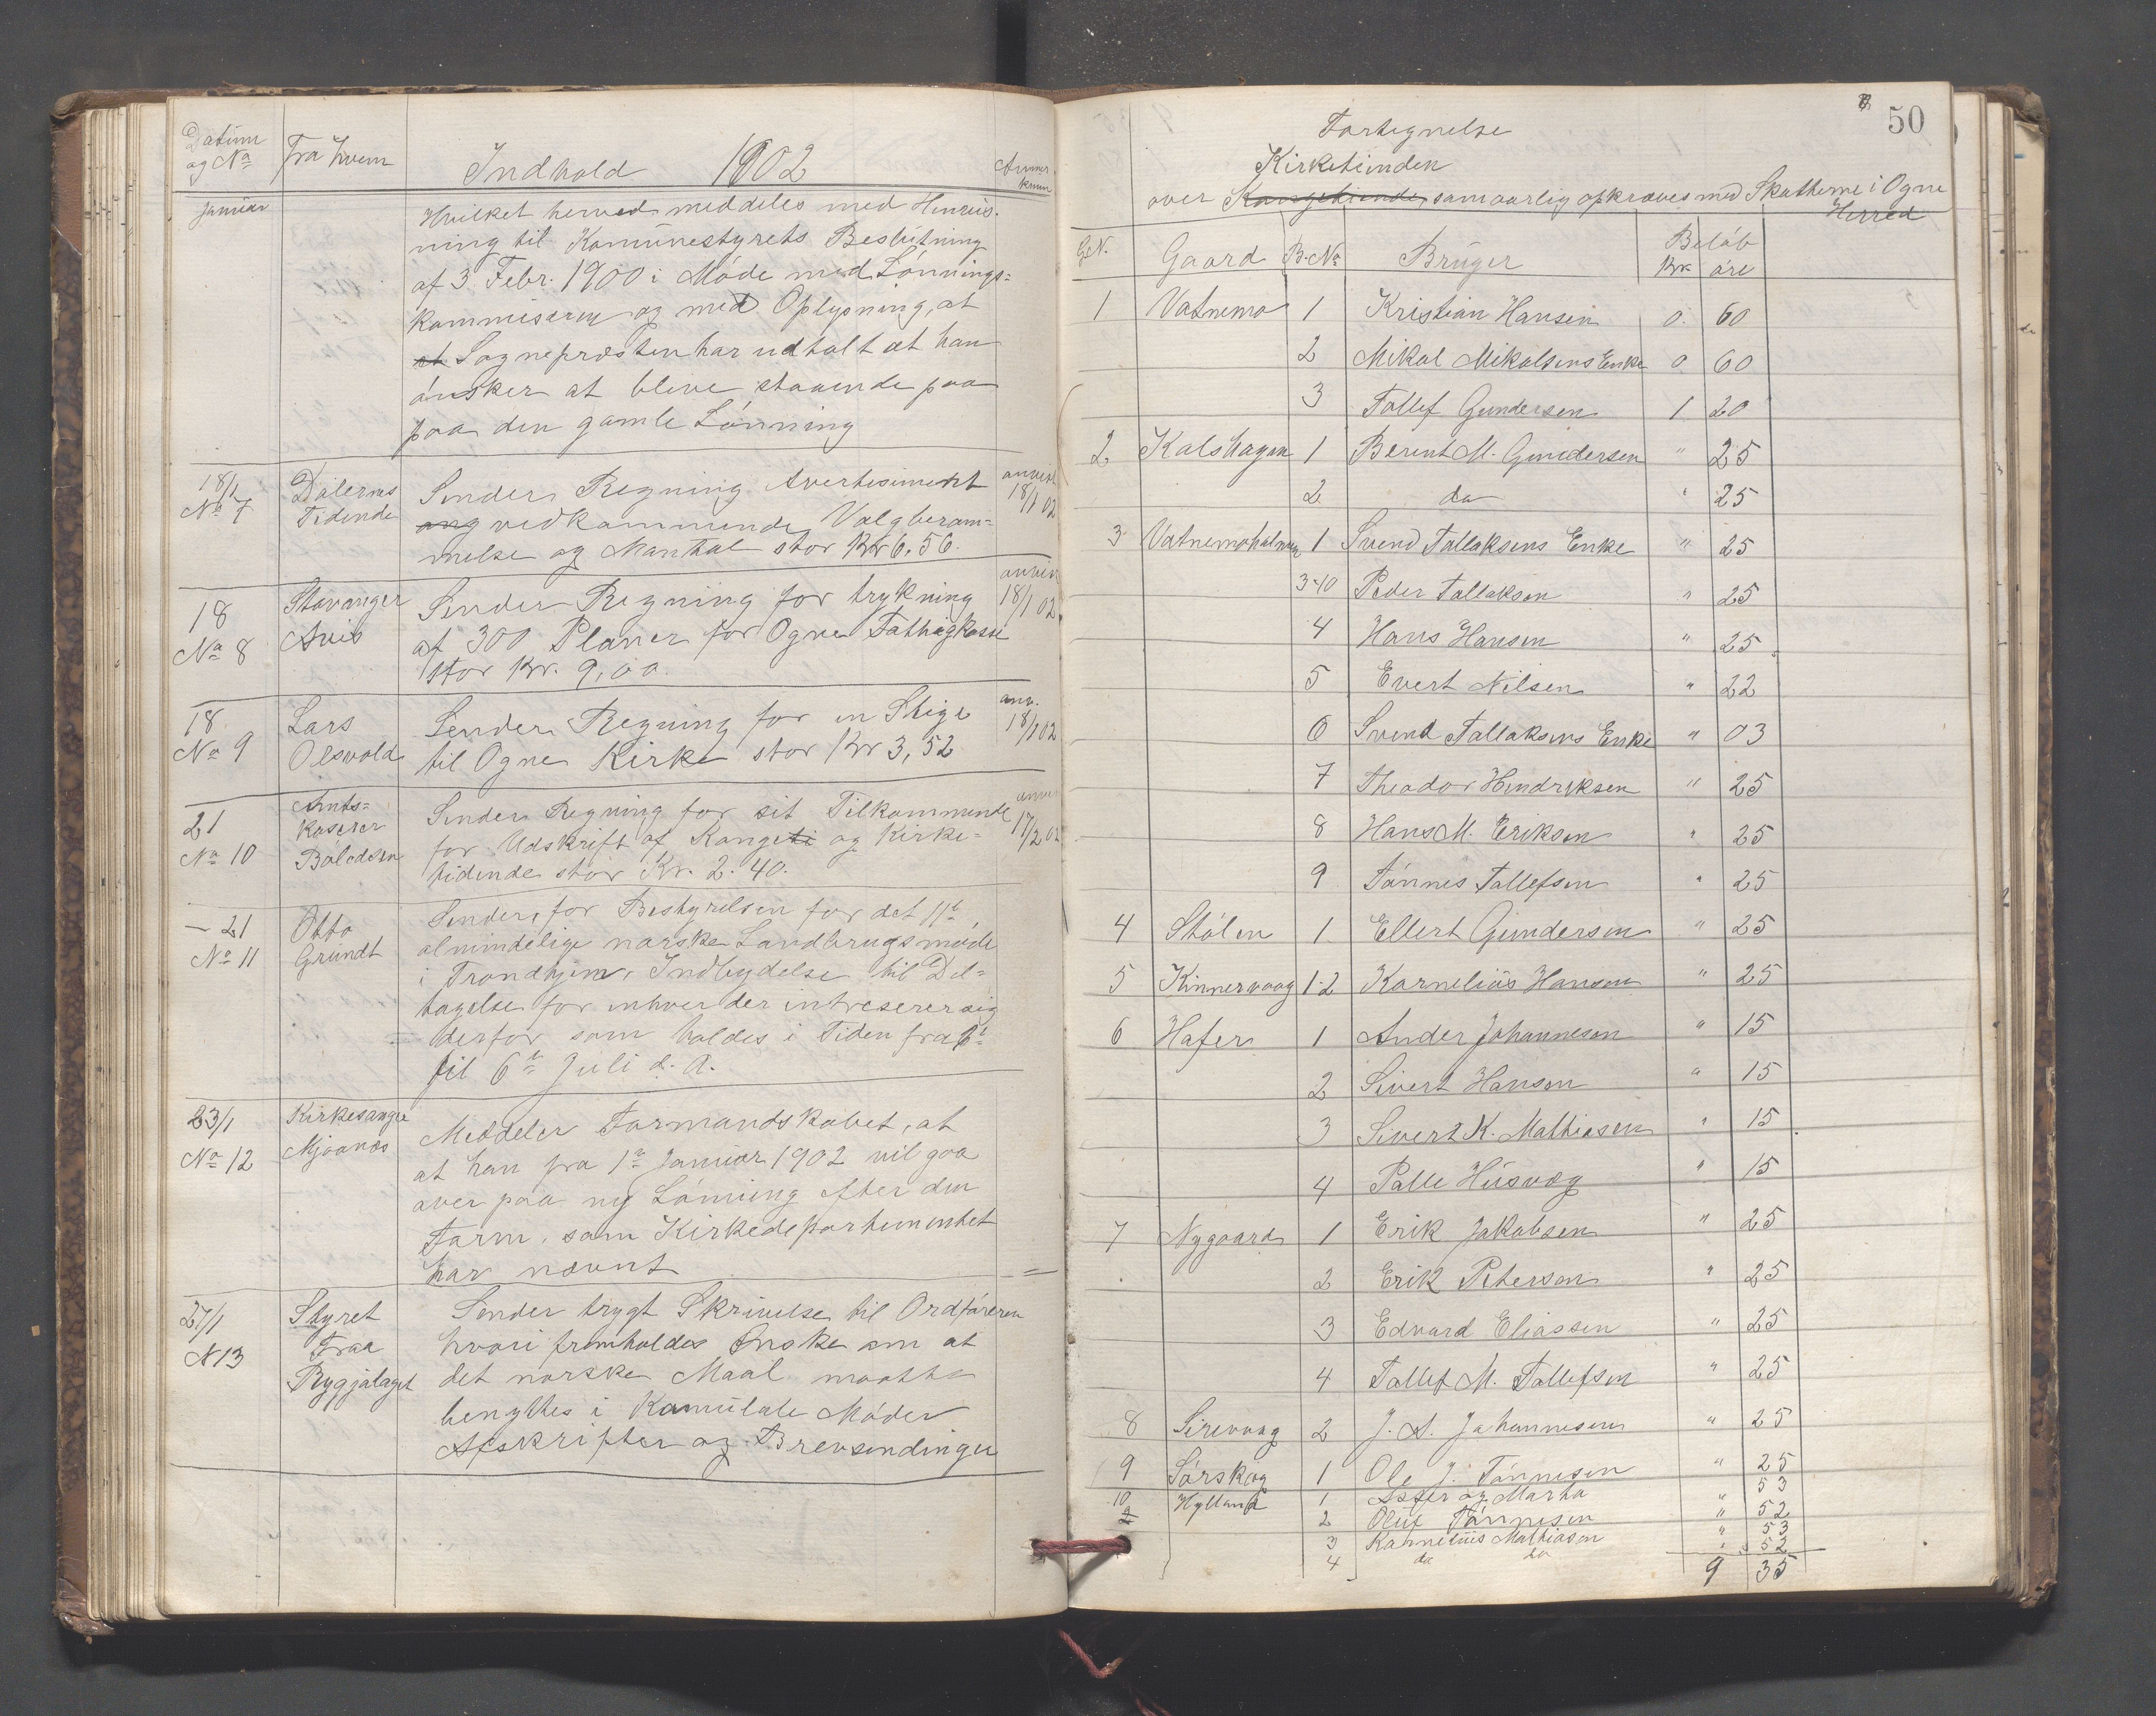 Datum og No Fra hvem Indhold 1902 Anmerknun
Januar
Hvilket herved meddeles med Henvis-
ning til Komunestyrets Beslutning
af 3 Febr. 1900 i Møde med Lønnings-
kommiseren og med Oplysning, at
at Sognepresten har udtalt at han
ønsker at blive staaende paa
paa den gamle Lønning
18/1 No 7 Dalernes Tidende
Sender Regning Avertesement
ang vedkommende Valgberam-
melse og Mantal stor Kr 6.56.
anvist 18/1 02
18 No 8 Stavanger Avis
Sender Regning for trykning
af 300 Planer for Ogne Fattigkasse
stor Kr. 9,00.
anvin 18/1 02
18 No 9 Lars Olsvold
Sender Regning for en Stige
til Ogne Kirke stor Kr 3,52
anv. 18/1 02
21 No 10 Amts- kaserer
Sender Regning for sit Tilkommende
for Udskrift af Kongeti og Kirke-
tidende stor Kr. 2.40.
17/2 02
- 21 No 11 Otto Grundt
Sender, for Bestyrelsen for det 11te
almindelige norske Landbrugsmøde
i Trondhjem, Indbydelse til Del-
tagelse for enhver der intreserer sig
derfor som holdes i Tiden fra
til 6te Juli d. A.
23/1 No 12 Kirkesanger Mjaanes
Meddeler Formandskabet, at
at han fra 1te Januar 1902 vil gaa
over paa ny Lønning efter den
Form, som Kirkedepartementet
har nævnt
27/1 N 13 Styret Fraa Rygjalaget
Sender trygt Skrivelse til Ordføreren
hvori fremholdes Ønske om at
det norske Maal maatte
benyttes i Komunale Møder
Afskrifter og Brevsendinger
50
Fortegnelse
Kirketienden
over Kongetiende, som aarlig opkræves med Skatterne i Ogne
Herred
G.N. Gaard B.No Bruger Beløb
Kr. øre
1 Vatnemo 1 Kristian Hansen 0. 60
2 Mikal Mikalsens Enke 0 60
3 Tollef Gundersen 1 20
2 Kalshagen 1 Berent M. Gundersen " 25
2 do " 25
3 Vatnemoholmen 1 Svend Tallaksens Enke " 25
3-10 Peder Tallaksen " 25
4 Hans Hansen " 25
5 Evert Nilsen " 22
6 Svend Tallaksens Enke " 03
7 Theodor Hendriksen " 25
8 Hans M. Eriksen " 25
9 Tønnes Tollefsen " 25
4 Stølen 1 Ellert Gundersen " 25
5 Kinnervaag 1-2 Kornelius Hansen " 25
6 Hafer 1 Ander Johannesen " 15
2 Sivert Hanson " 15
3 Sivert K. Mathiasen " 15
4 Palle Husvæg " 15
7 Nygaard 1 Erik Jakobsen " 25
2 Erik Peterson " 25
3 Edvard Eliassen " 25
4 Tollef M. Tollefsen " 25
8 Sirevaag 2 J. A. Johannesen " 25
9 Sørskog 1 Ole J. Tønnesen " 25
10 Hylland 1 og Marta " 53
2 2 Oluf Tønnesen " 52
3 Kornelius Mathiasen " 53
4 do do " 52
9 35